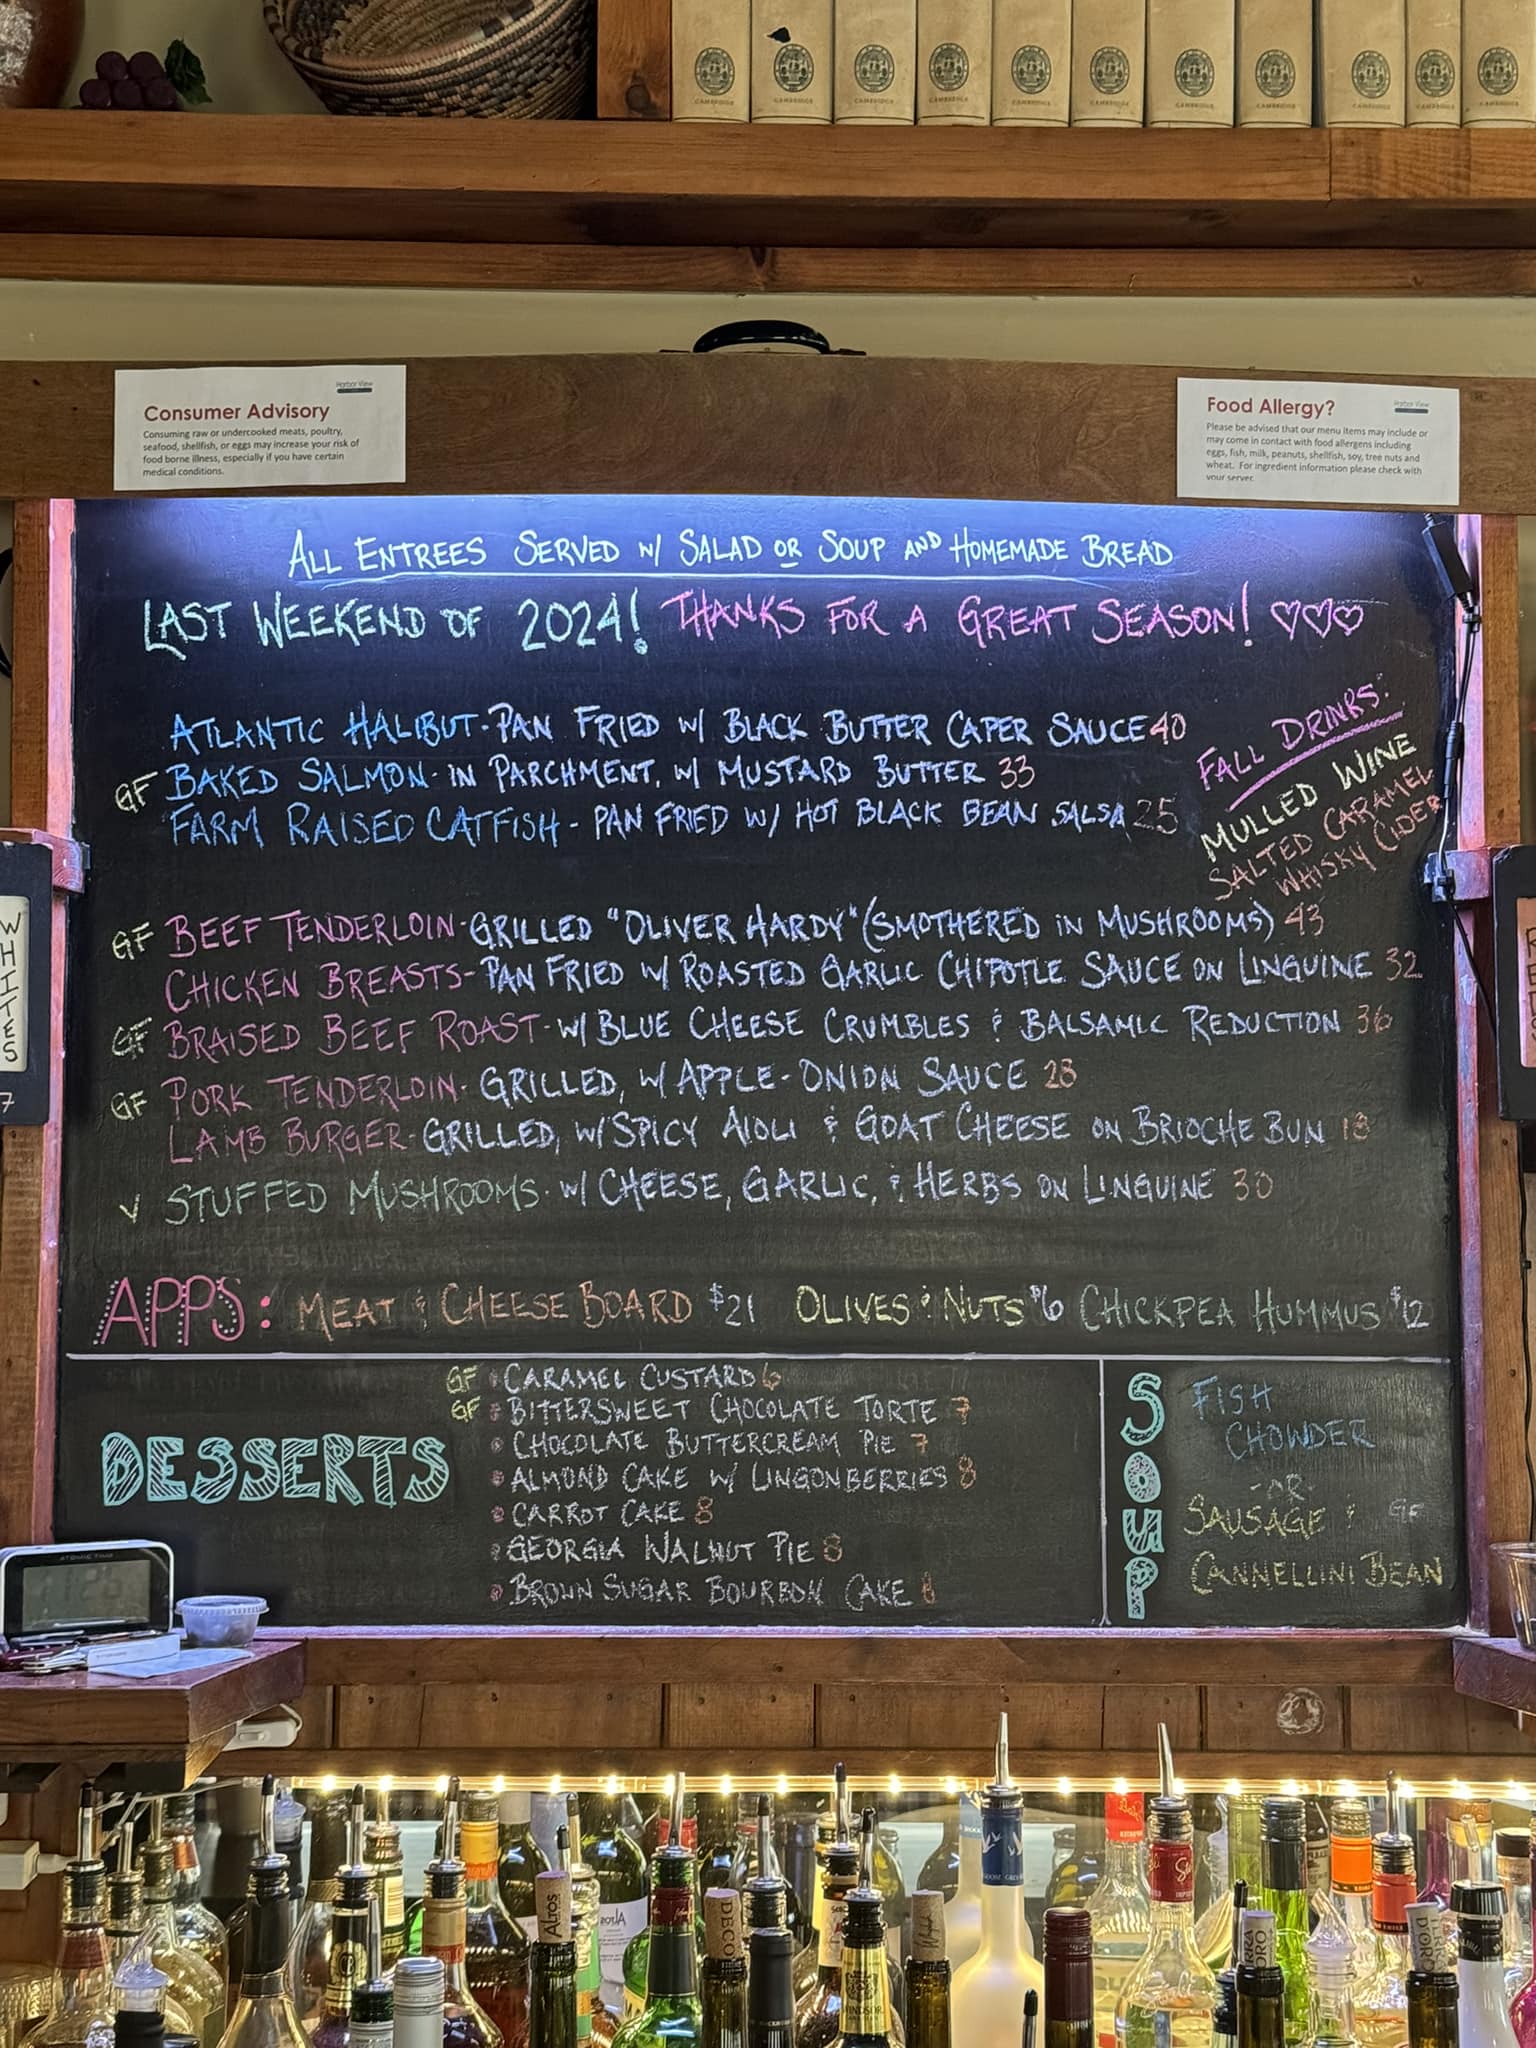 CAMBRIDGE CAMBRIDGE CAMBRIDGE CAMBRIDGE CAMBRIDGE CAMBRIDGE CAMBRIDGE CAMBRIDGE CAMBRIDGE CAMBRIDGE CAMBRIDGE
Harbor View
Consumer Advisory
Consuming raw or undercooked meats, poultry,
seafood, shellfish, or eggs may increase your risk of
food borne illness, especially if you have certain
medical conditions.
Harbor View
Food Allergy?
Please be advised that our menu items may include or
may come in contact with food allergens including
eggs, fish, milk, peanuts, shellfish, soy, tree nuts and
wheat. For ingredient information please check with
your server.
ALL ENTREES SERVED W/ SALAD OR SOUP AND HOMEMADE BREAD
LAST WEEKEND OF 2024! THANKS FOR A GREAT SEASON! ♡♡♡
ATLANTIC HALIBUT - PAN FRIED W/ BLACK BUTTER CAPER SAUCE 40
GF BAKED SALMON - IN PARCHMENT, W/ MUSTARD BUTTER 33
FARM RAISED CATFISH - PAN FRIED W/ HOT BLACK BEAN SALSA 25
FALL DRINKS:
MULLED WINE
SALTED CARAMEL
WHISKY CIDER
GF BEEF TENDERLOIN - GRILLED "OLIVER HARDY" (SMOTHERED IN MUSHROOMS) 43
CHICKEN BREASTS - PAN FRIED W/ ROASTED GARLIC CHIPOTLE SAUCE ON LINGUINE 32
GF BRAISED BEEF ROAST - W/ BLUE CHEESE CRUMBLES & BALSAMIC REDUCTION 36
GF PORK TENDERLOIN - GRILLED, W/ APPLE-ONION SAUCE 28
LAMB BURGER - GRILLED, W/ SPICY AIOLI & GOAT CHEESE ON BRIOCHE BUN 18
V STUFFED MUSHROOMS - W/ CHEESE, GARLIC, & HERBS ON LINGUINE 30
APPS: MEAT & CHEESE BOARD $21 OLIVES & NUTS $6 CHICKPEA HUMMUS $12
DESSERTS
GF CARAMEL CUSTARD 6
GF BITTERSWEET CHOCOLATE TORTE 7
CHOCOLATE BUTTERCREAM PIE 7
ALMOND CAKE W/ LINGONBERRIES 8
CARROT CAKE 8
GEORGIA WALNUT PIE 8
BROWN SUGAR BOURBON CAKE 8
SOUP
FISH
CHOWDER
-OR-
SAUSAGE & GF
CANNELLINI BEAN
WHITES
7
ATOMIC TIME
ALTOS
DECO